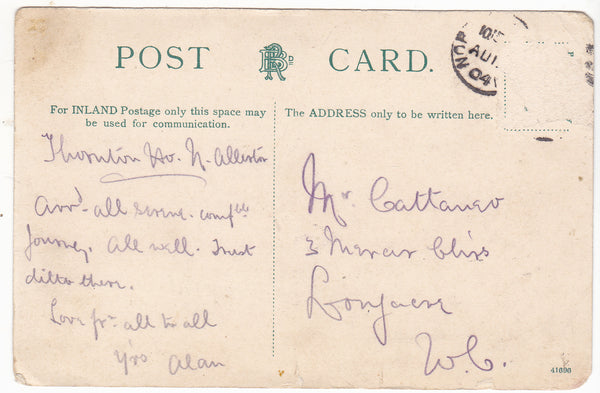 POST CARD.
For INLAND Postage only this space may
be used for communication.
The ADDRESS only to be written here.
10 15
AU
04
Thornton Ho. N. Allerton
Arrd. all serene. comfble
Journey. All well. Trust
ditto there.
Love fr. all to all
Yrs Alan
Mr Cattaneo
3 Mercer
Longacre
W.C.
41696